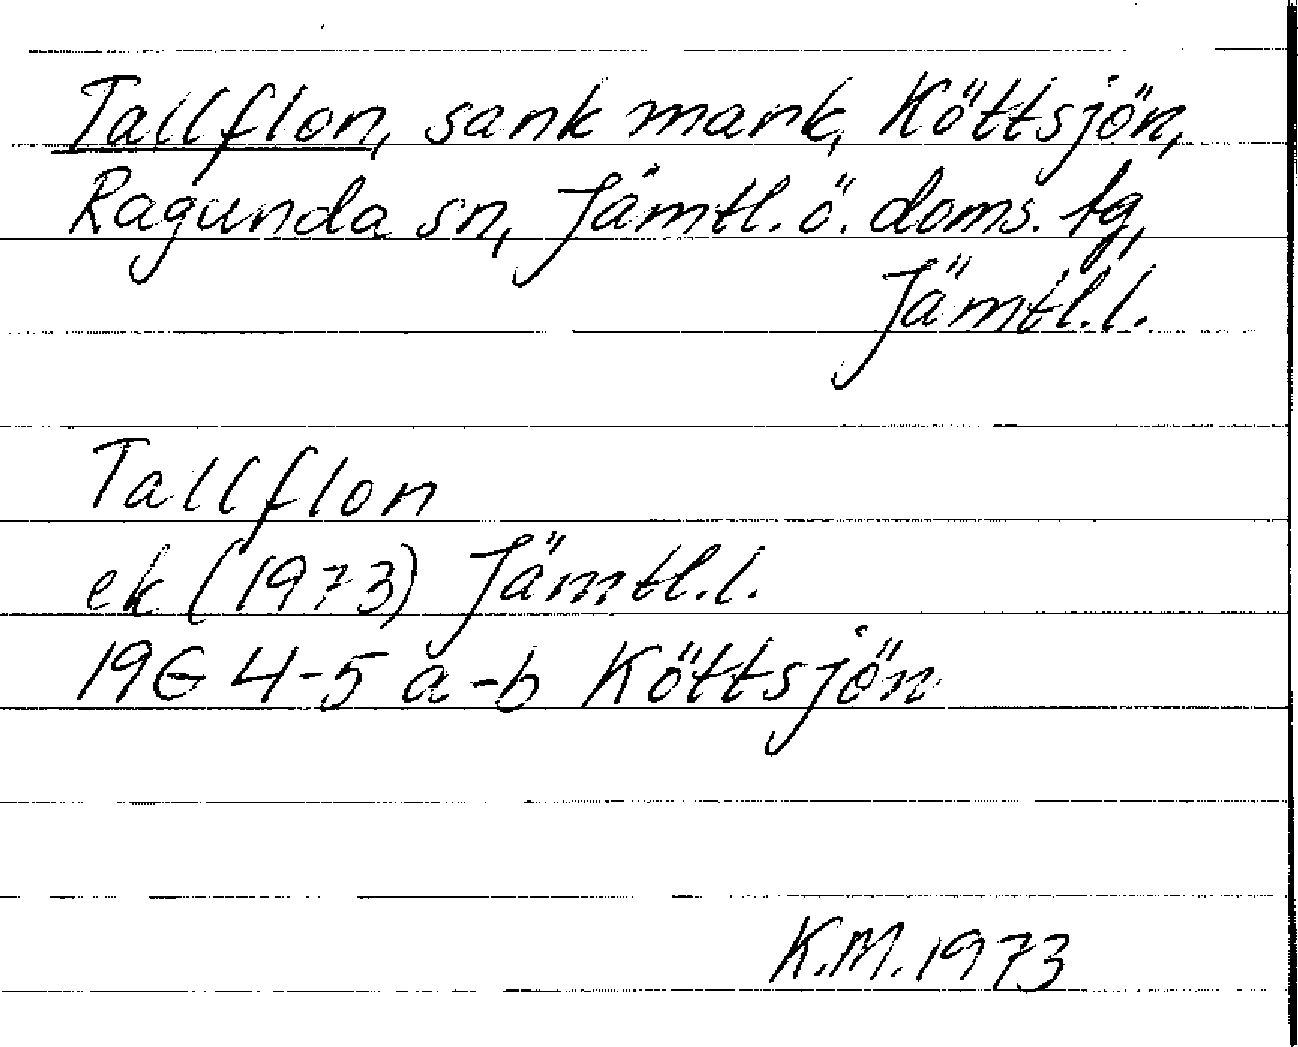 Tallflon, sank mark, Köttsjön,
Ragunda sn, Jämtl. ö. doms. tg,
Jämtl.l.
Tallflon
ek (1973) Jämtl.l.
19G 4-5 a-b Köttsjön
K.M. 1973